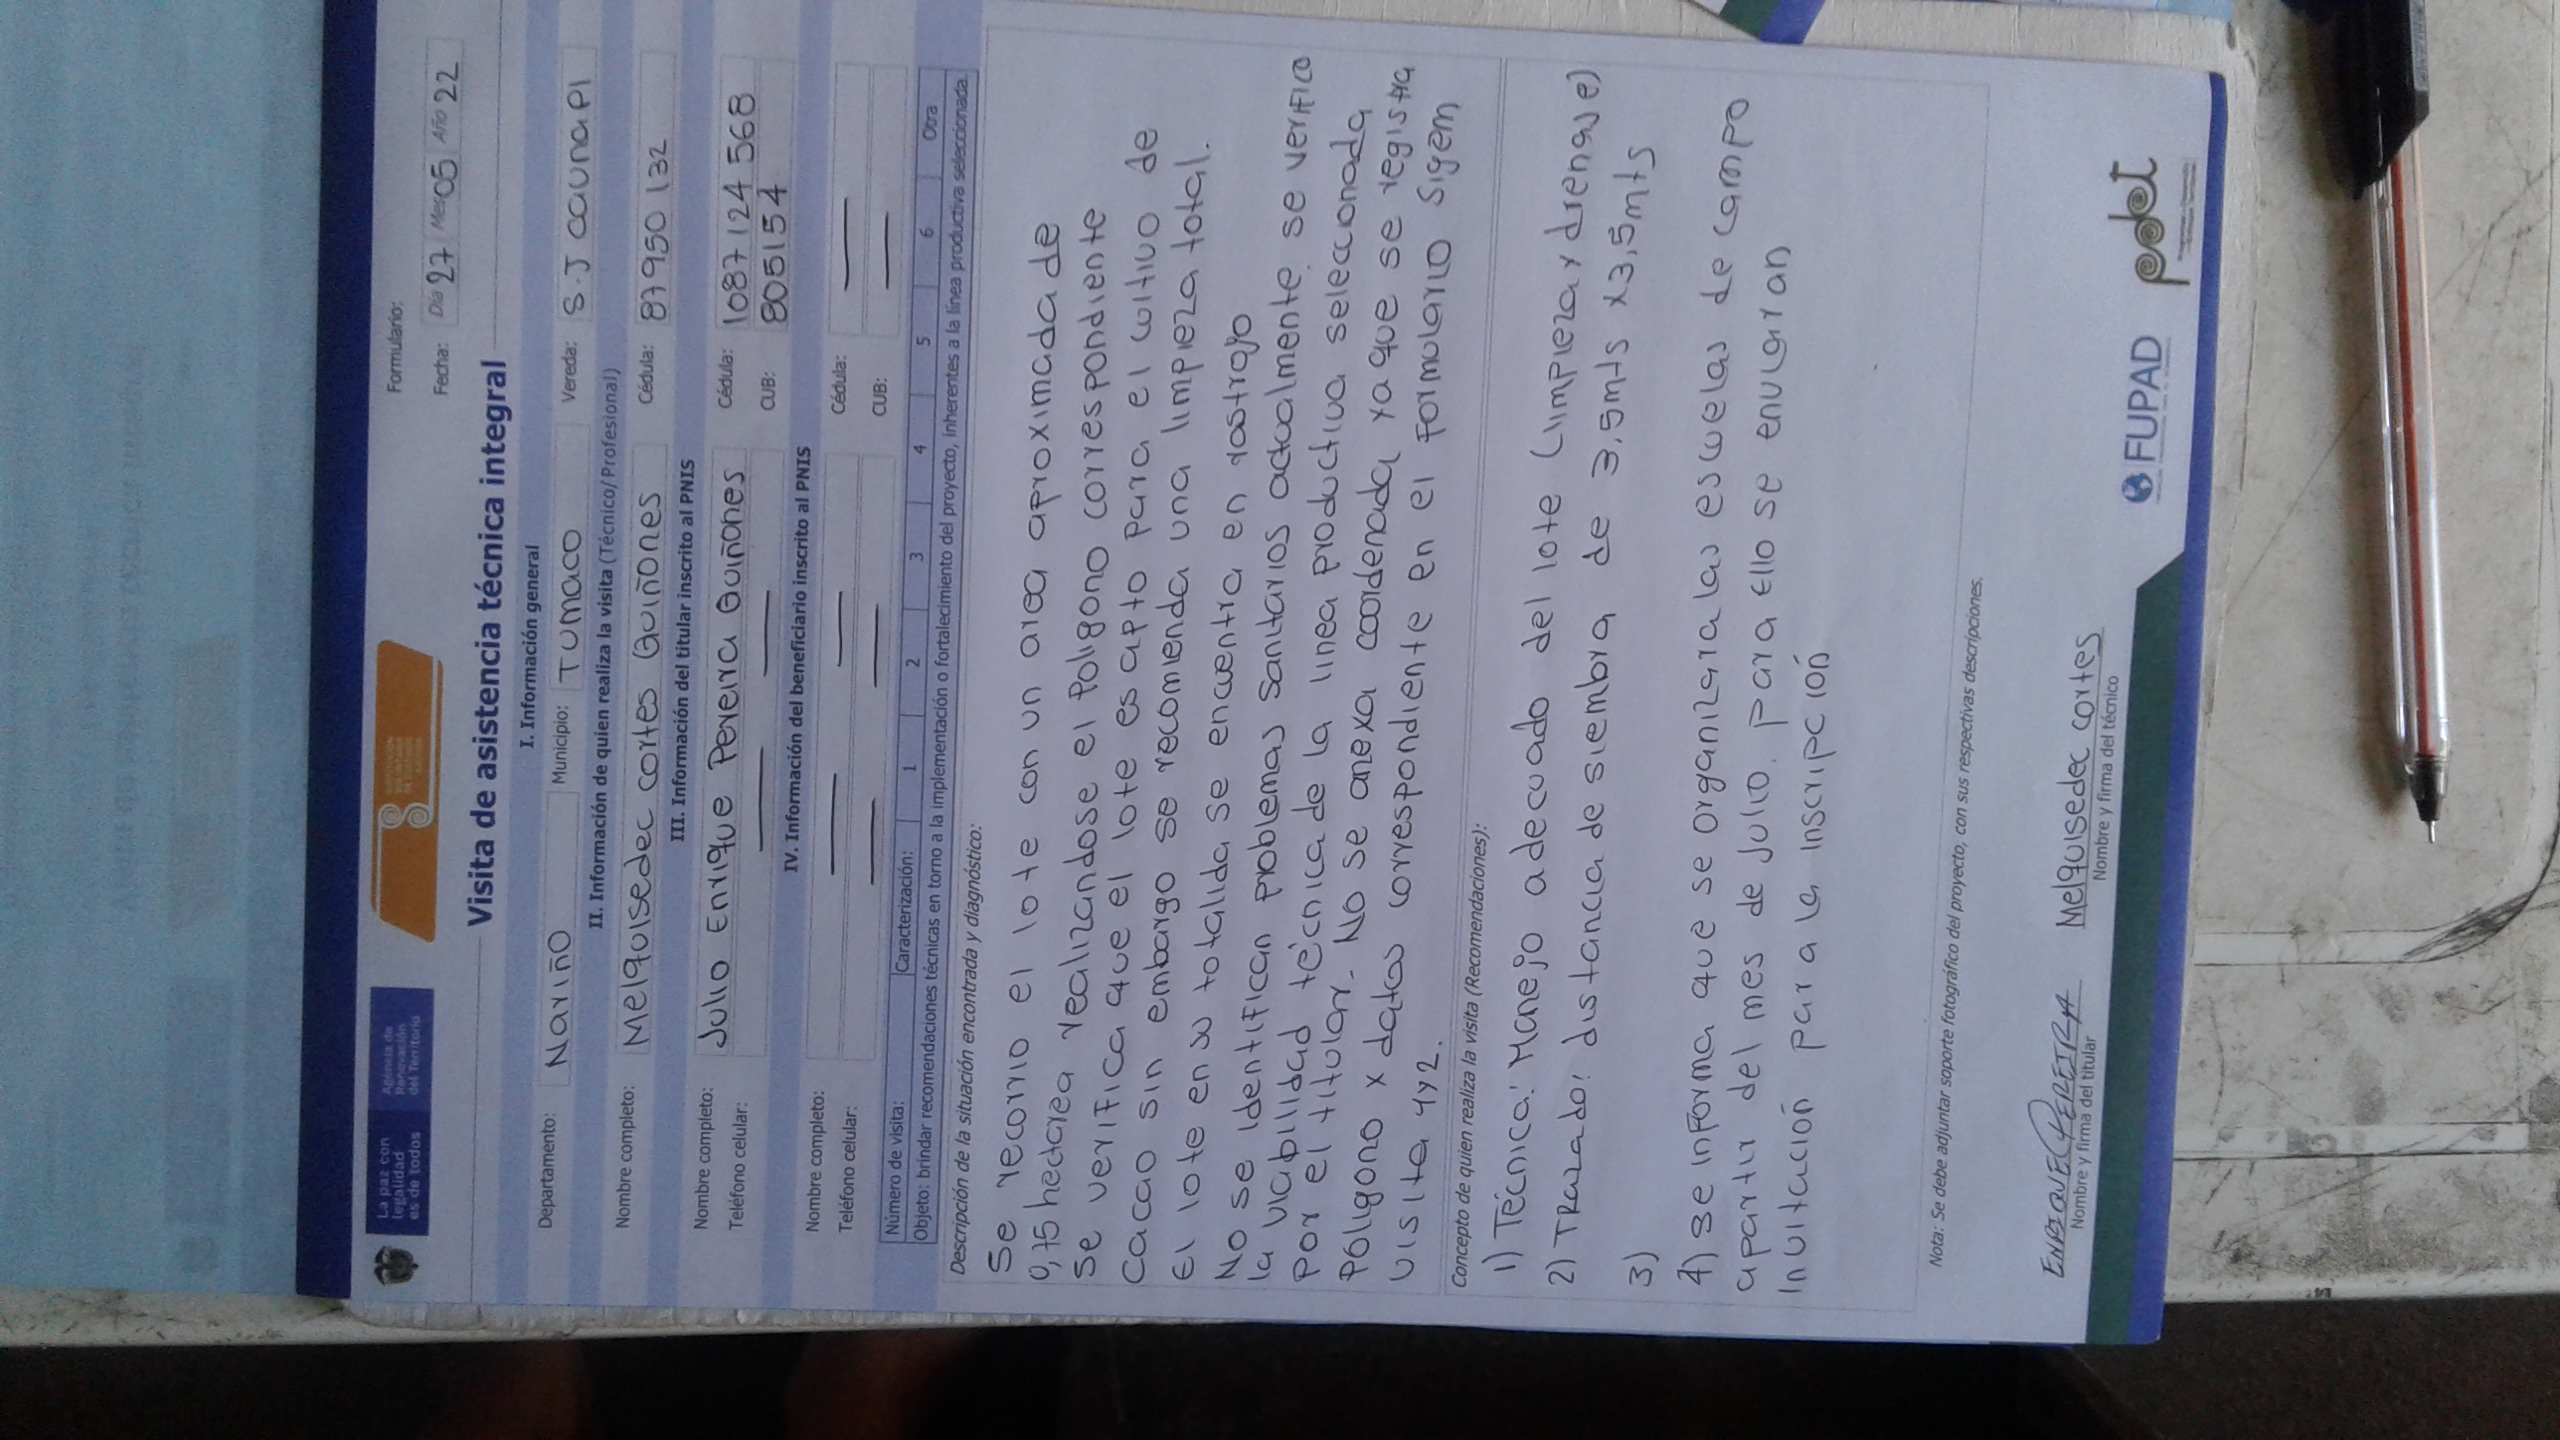 La paz con
legalidad
es de todos
Agencia de
Renovación
del Territorio
Formulario:
Fecha: Día 27 Mes 05 Año 22
Visita de asistencia técnica integral
I. Información general
Departamento: Nariño Municipio: Tumaco Vereda: S.J Caunapi
II. Información de quien realiza la visita (Técnico/Profesional)
Nombre completo: Melquisedec cortes Quiñones Cédula: 87950132
III. Información del titular inscrito al PNIS
Nombre completo: Julio Enrique Pereira Quiñones Cédula: 1087124568
Teléfono celular: — — — CUB: 805154
IV. Información del beneficiario inscrito al PNIS
Nombre completo: — — Cédula: —
Teléfono celular: — — — CUB: —
Número de visita: Caracterización: 1 2 3 4 5 6 Otra
Objeto: brindar recomendaciones técnicas en torno a la implementación o fortalecimiento del proyecto, inherentes a la línea productiva seleccionada.
Descripción de la situación encontrada y diagnóstico:
Se recorrio el lote con un area aproximada de
0,75 hectarea realizandose el Poligono correspondiente
Se verifica que el lote es apto para el cultivo de
Cacao sin embargo se recomienda una limpieza total.
El lote en su totalida se encuentra en rastrojo
No se identifican problemas sanitarios actualmente. se verifico
la viabilidad técnica de la linea productiva seleccionada
Por el titular. No se anexa coordenada ya que se registra
Poligono x datos correspondiente en el formulario Sigem
visita 4 y 2.
Concepto de quien realiza la visita (Recomendaciones):
1) Técnica: Manejo adecuado del lote (limpieza y drenaje)
2) Trazado: distancia de siembra de 3,5mts x3,5mts
3)
4) se informa que se organizara las escuelas de campo
apartir del mes de Julio. para Ello se envularan
Invitación para la inscripción
Nota: Se debe adjuntar soporte fotográfico del proyecto, con sus respectivas descripciones.
ENRIQUE PEREIRA Melquisedec cortes
Nombre y firma del titular Nombre y firma del técnico
FUPAD pdet